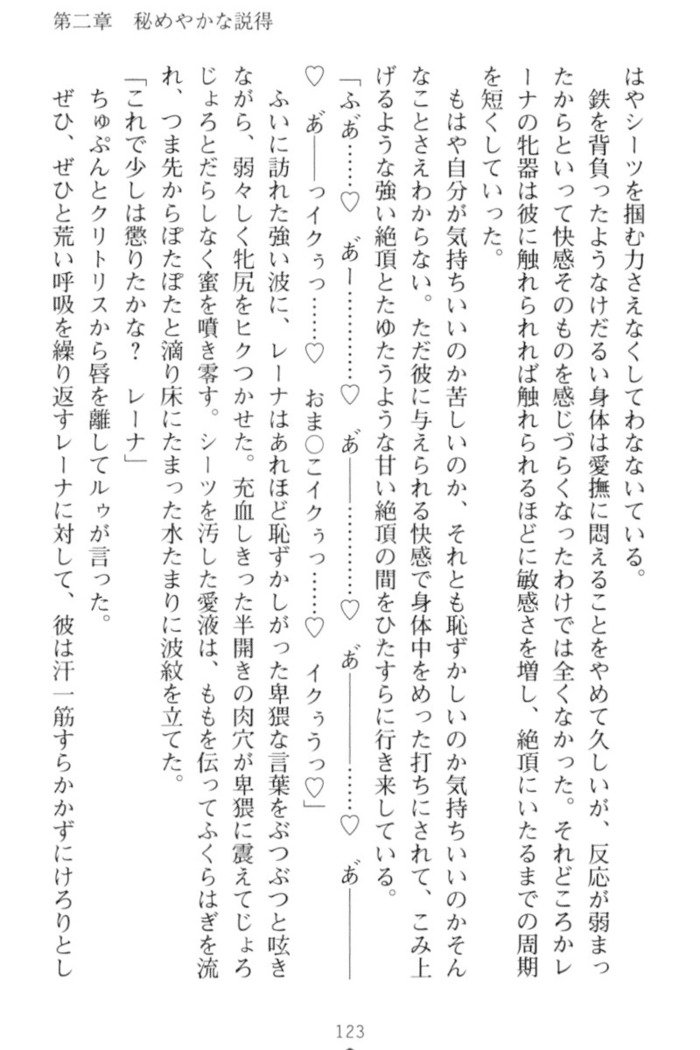 第二章　秘めやかな説得
はやシーツを掴む力さえなくしてわなないている。
　鉄を背負ったようなけだるい身体は愛撫に悶えることをやめて久しいが、反応が弱まっ
たからといって快感そのものを感じづらくなったわけでは全くなかった。それどころかレ
ーナの牝器は彼に触れられれば触れられるほどに敏感さを増し、絶頂にいたるまでの周期
を短くしていった。
　もはや自分が気持ちいいのか苦しいのか、それとも恥ずかしいのか気持ちいいのかそん
なことさえわからない。ただ彼に与えられる快感で身体中をめった打ちにされて、こみ上
げるような強い絶頂とたゆたうような甘い絶頂の間をひたすらに行き来している。
「ふあ゛……♡　あ゛ー…………♡　あ゛――…………♡　あ゛―――……♡　あ゛―――
♡　あ゛――っイクぅっ……♡　おま○こイクぅっ……♡　イクぅうっ♡」
　ふいに訪れた強い波に、レーナはあれほど恥ずかしがった卑猥な言葉をぶつぶつと呟き
ながら、弱々しく牝尻をヒクつかせた。充血しきった半開きの肉穴が卑猥に震えてじょろ
じょろとだらしなく蜜を噴き零す。シーツを汚した愛液は、ももを伝ってふくらはぎを流
れ、つま先からぽたぽたと滴り床にたまった水たまりに波紋を立てた。
「これで少しは懲りたかな？　レーナ」
　ちゅぷんとクリトリスから唇を離してルゥが言った。
　ぜひ、ぜひと荒い呼吸を繰り返すレーナに対して、彼は汗一筋すらかかずにけろりとし
123